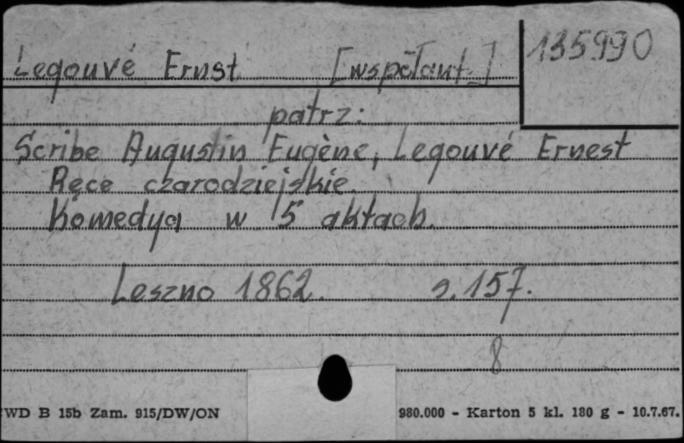 135990
Legouvé Ernst [współaut.]
patrz:
Scribe Augustin Eugène, Legouvé Ernest
Ręce czarodziejskie.
Komedya w 5 aktach.
Leszno 1862. s. 157.
8
WD B 15b Zam. 915/DW/ON 980.000 - Karton 5 kl. 180 g - 10.7.67.